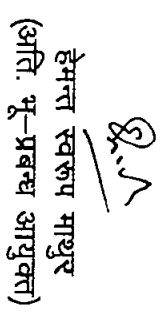 हेमन्त स्वरूप माथुर
(अति. भू-प्रबन्ध आयुक्त)